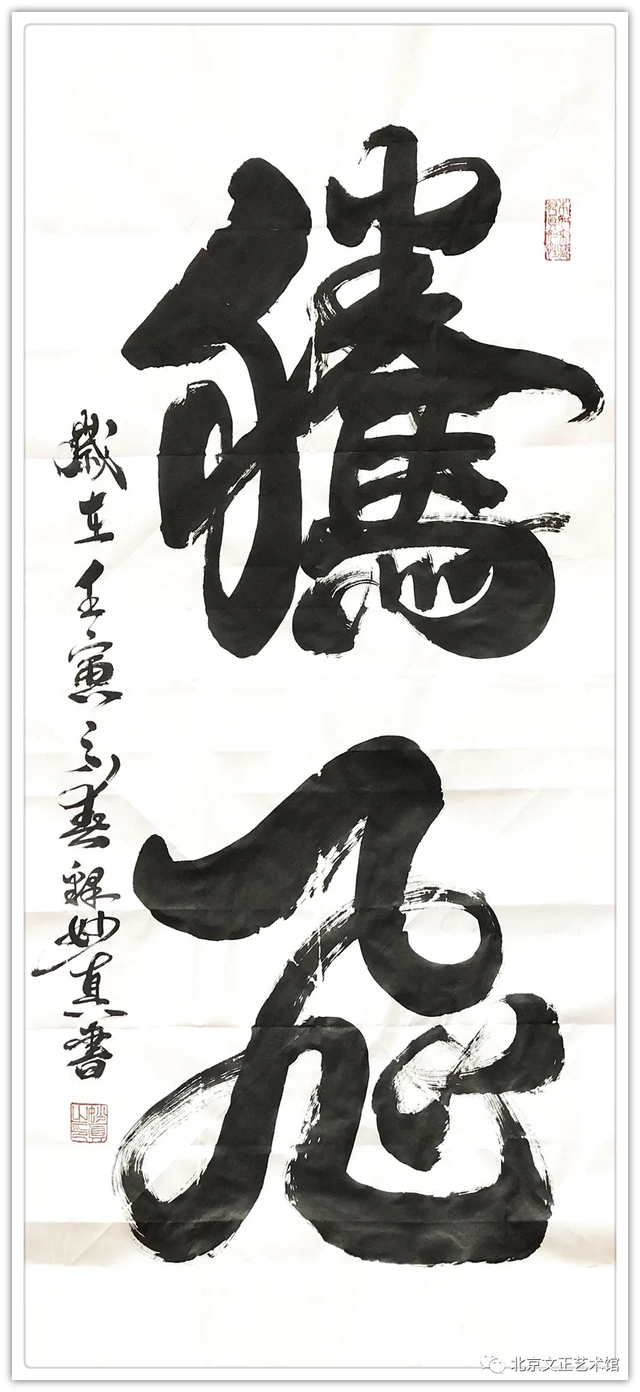 騰飛
歲在壬寅之春釋妙真書
北京文正艺术馆